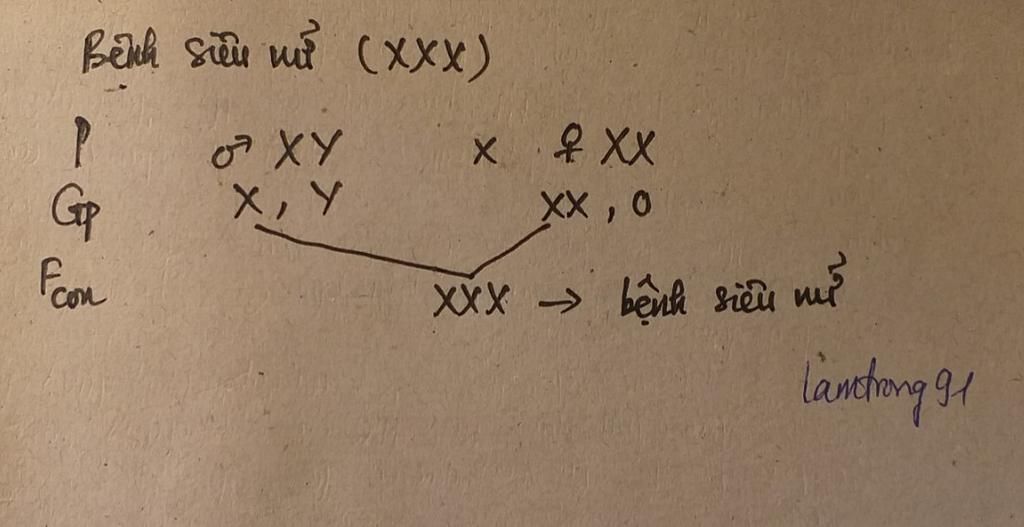 Bệnh siêu nữ (XXX)
P ♂ XY x ♀ XX
Gp X, Y XX, O
Fcon XXX → bệnh siêu nữ
lamtrong91